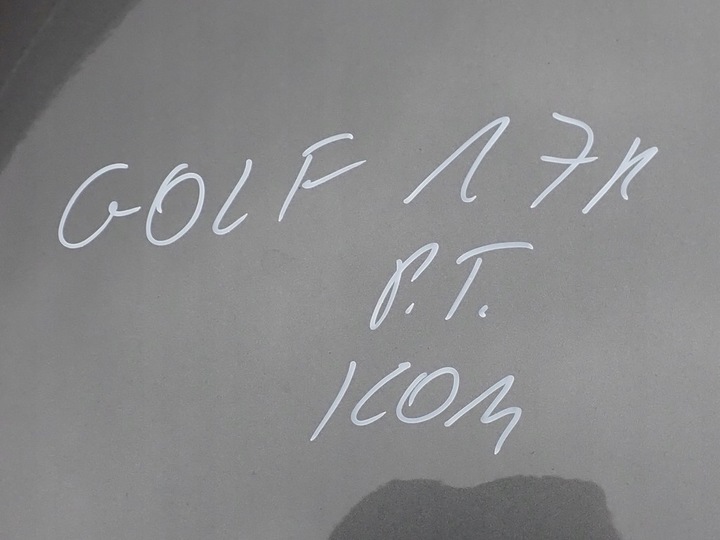 GOLF 17R
P.T.
KOM